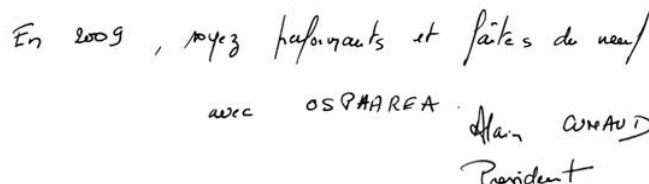 En 2009, soyez performants et faites du neuf
avec OSPHAREA.
Alain CUMAUD
Président